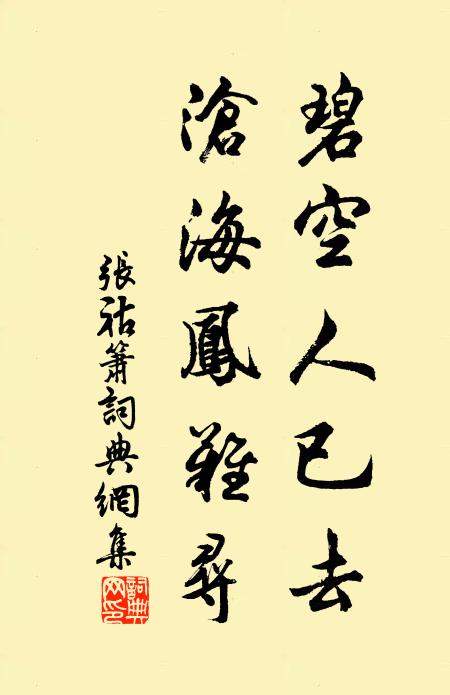 碧空人已去
滄海鳳難尋
張祜簫詞典網集
詞典網印